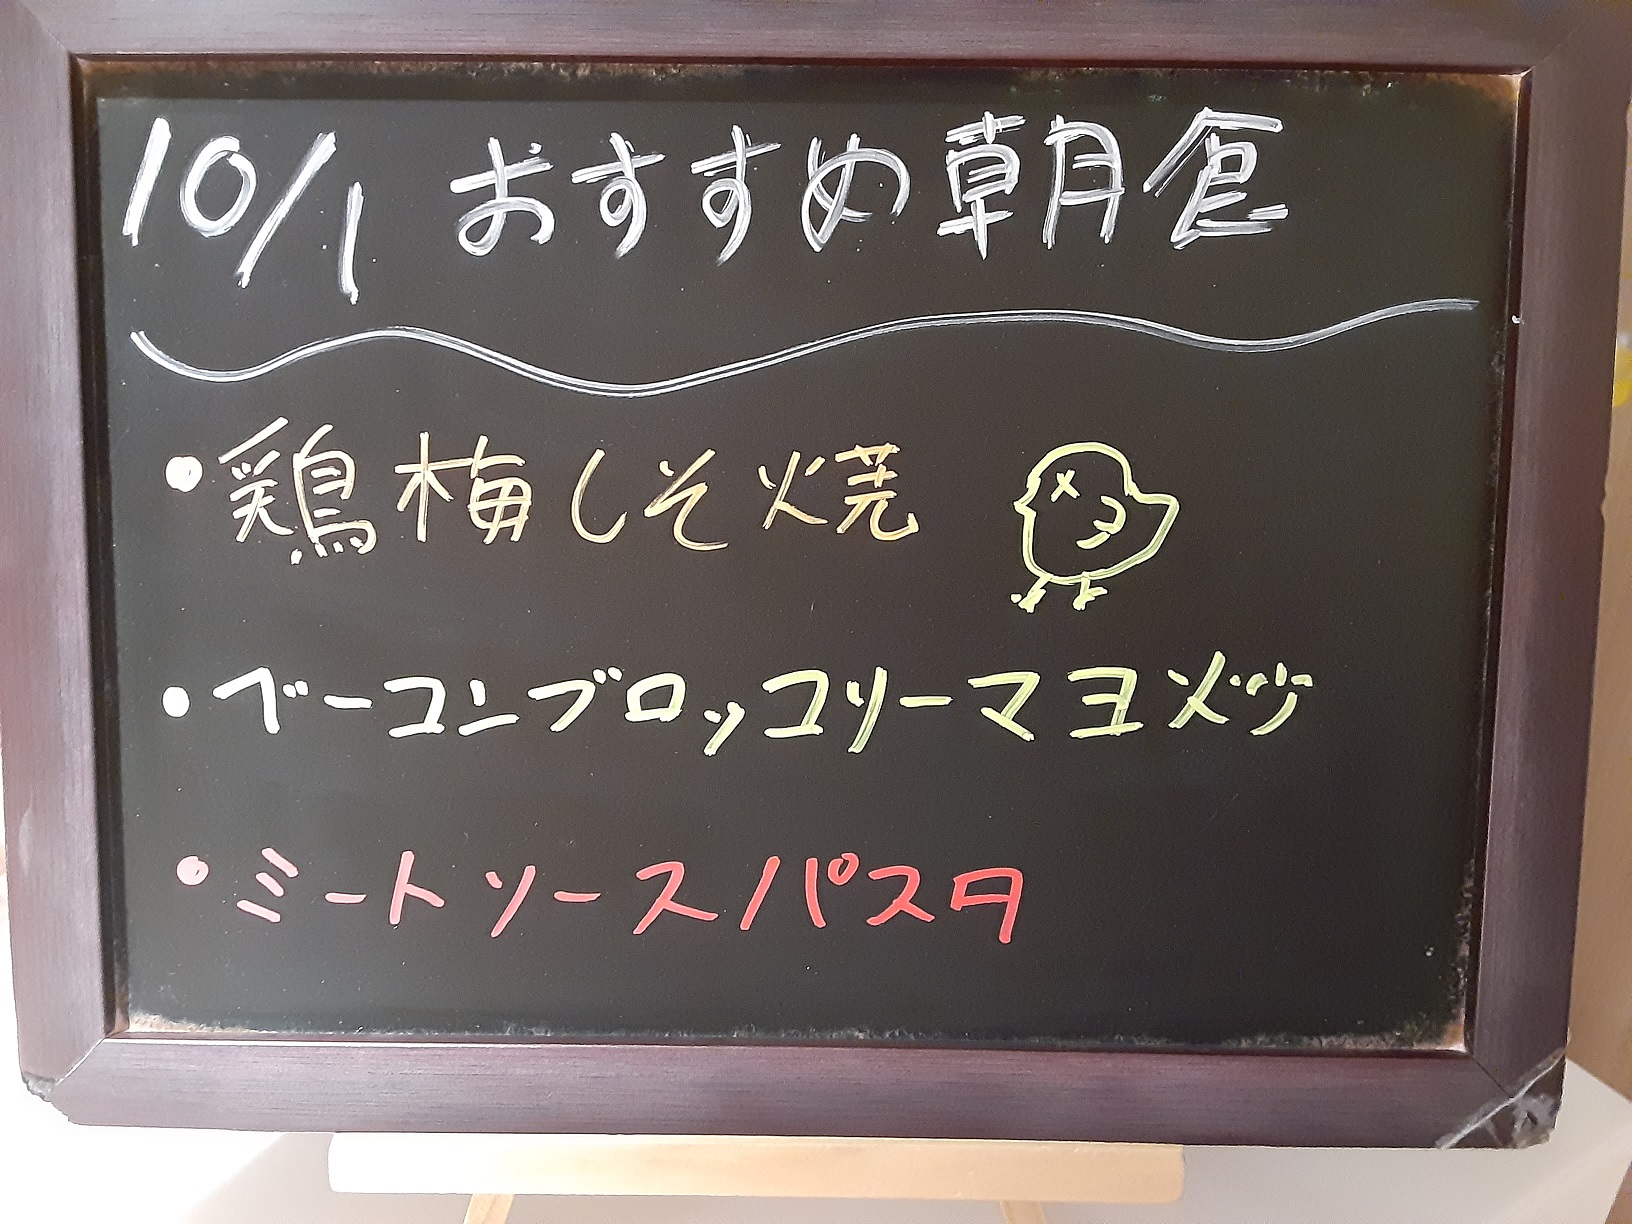 10/1 おすすめ朝食
・鶏梅しそ焼
・ベーコンブロッコリーマヨメンツ
・ミートソースパスタ